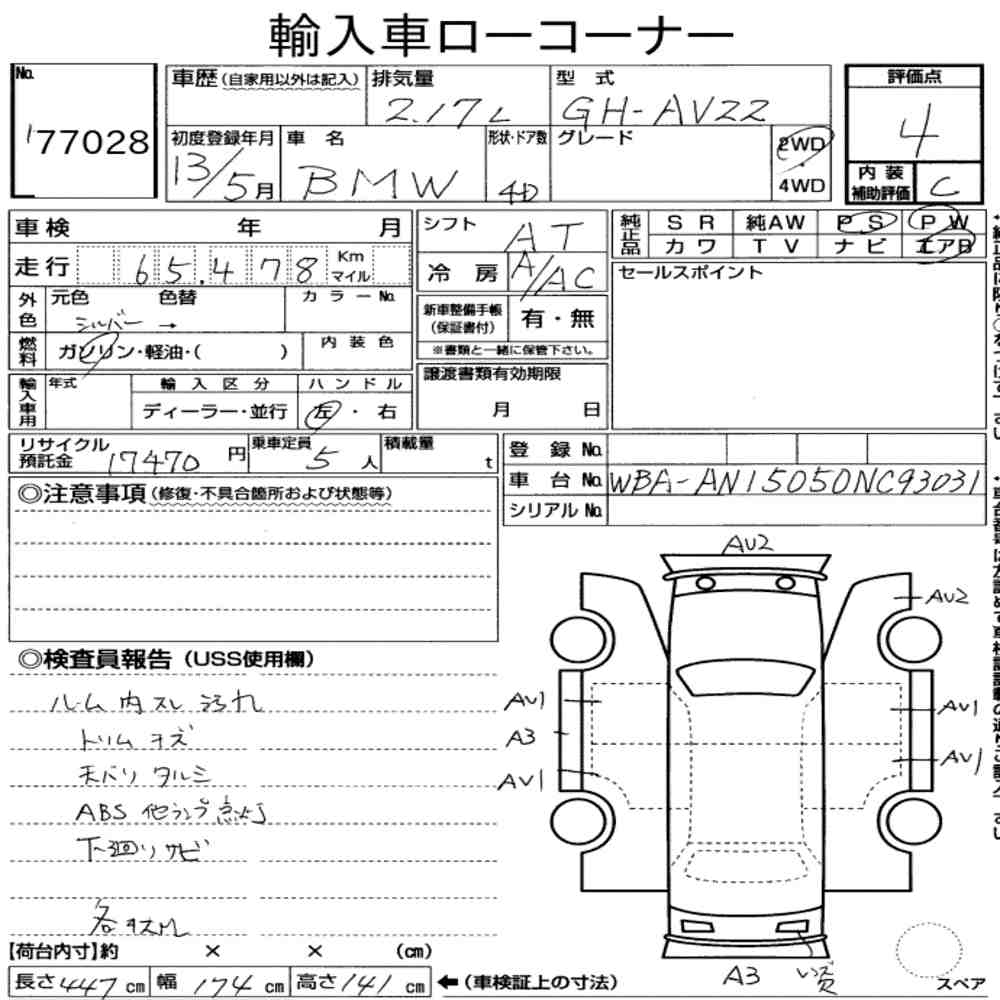 輸入車ローコーナー
No. 177028
車歴(自家用以外は記入) 排気量 2.17L 型式 GH-AV22
初度登録年月 13/5月 車名 BMW 形状・ドア数 4D グレード 2WD・4WD
評価点 4
内装補助評価 C
車検 年 月
走行 65.478 Km マイル
外色 元色 シルバー → 色替 カラーNo.
燃料 ガソリン・軽油・( ) 内装色
輸入車用 年式 輸入区分 ディーラー・並行 ハンドル 左・右
シフト AT
冷房 A/AC
新車整備手帳(保証書付) 有・無
※書類と一緒に保管下さい。
譲渡書類有効期限 月 日
純正品 SR 純AW PS PW
カワ TV ナビ エアB
セールスポイント
リサイクル預託金 17470円 乗車定員 5人 積載量 t
登録No.
車台No. WBA-AN15050NC93031
シリアルNo.
◎注意事項(修復・不具合箇所および状態等)
◎検査員報告(USS使用欄)
ルーム内スレ汚れ
トリムキズ
天バリ タルミ
ABS 他ランプ点灯
下廻りサビ
各キズ凹
AU2
AU2
AU1
A3
AU1
AU1
AU1
A3
スペア
【荷台内寸】約 × × (cm)
長さ 447 cm 幅 174 cm 高さ 141 cm ←(車検証上の寸法)